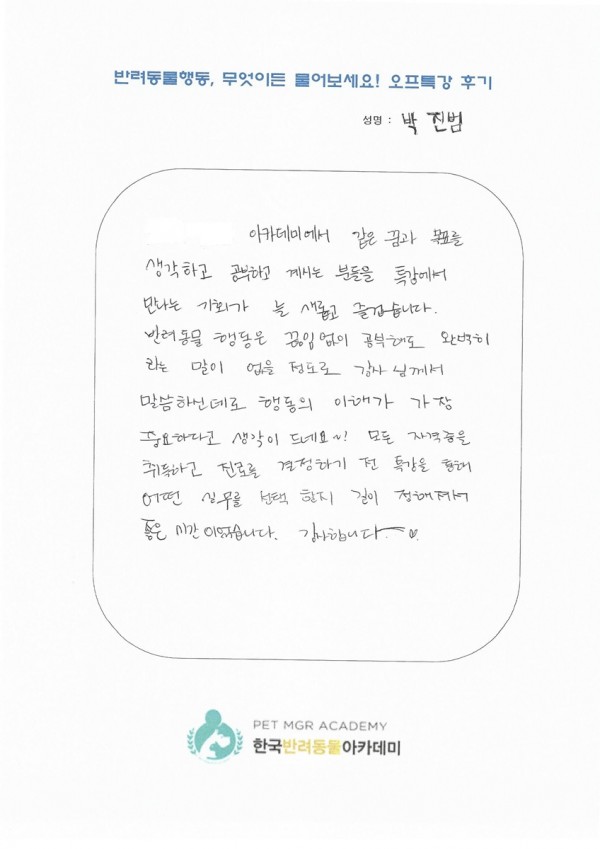 반려동물행동, 무엇이든 물어보세요! 오프특강 후기
성명 : 박 진범
아카데미에서 같은 꿈과 목표를
생각하고 공부하고 계시는 분들을 특강에서
만나는 기회가 늘 새롭고 즐겁습니다.
반려동물 행동은 끊임없이 공부해도 완벽히
라는 말이 없을 정도로 강사님께서
말씀하신데로 행동의 이해가 가장
중요하다고 생각이 드네요~! 모든 자격증을
취득하고 진로를 결정하기 전 특강을 통해
어떤 실무를 선택 할지 길이 정해져서
좋은 시간이었습니다. 감사합니다
PET MGR ACADEMY
한국반려동물아카데미